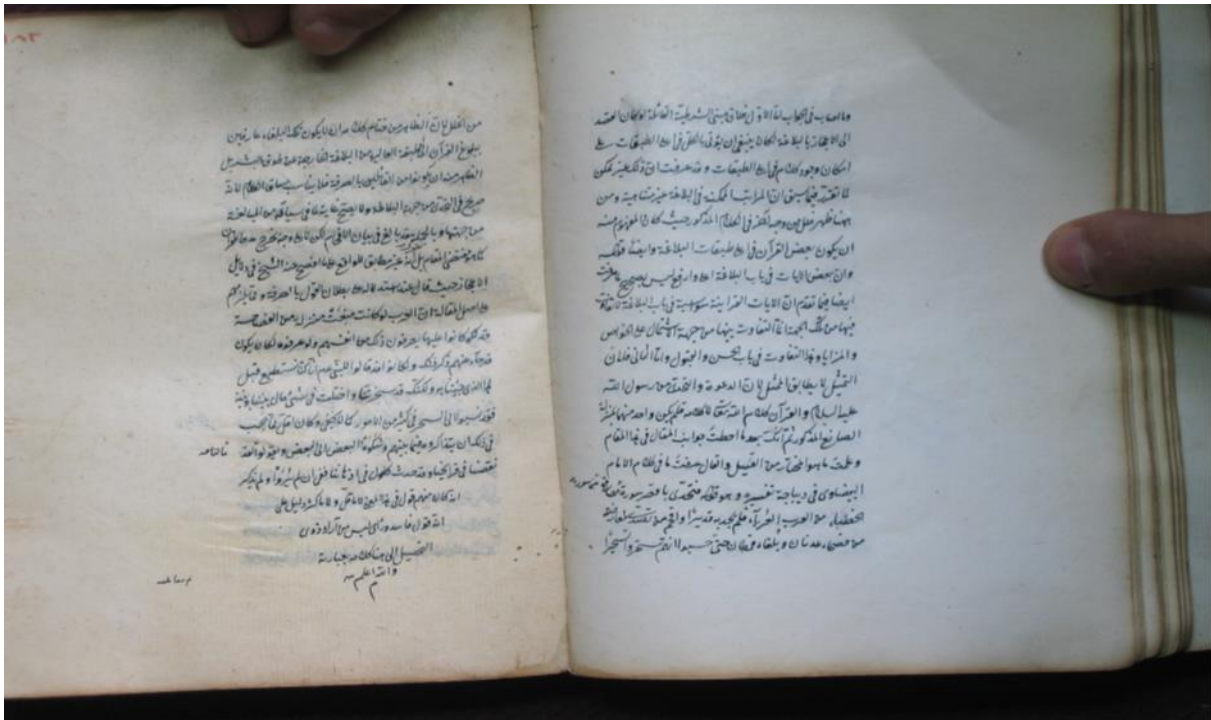 وما اصاب في الجواب اما الاول فلان مبنى الشرطية القائلة لو كان القصد
الى الاعجاز بالبلاغة لكان ينبغي ان يؤتى بالكل في اعلى الطبقات على
امكان وجود كلام في اعلى الطبقات وقد عرفت ان ذلك غير ممكن
لما تقرر فيما سبق ان المراتب الممكنة في البلاغة غير متناهية ومن
ههنا ظهر خلل من وجه آخر في الكلام المذكور حيث كان المفهوم منه
ان يكون بعض القرآن في اعلى طبقات البلاغة وايضا قوله
وان بعض الآيات في باب البلاغة اعلى وارفع ليس بصحيح لما عرفت
ايضا فيما تقدم ان الآيات القرآنية متساوية في باب البلاغة لا تفاوت
فيها من تلك الجهة انما التفاوت بينها من جهة الاشتمال على الخواص
والمزايا وهذا التفاوت في باب الحسن والقبول واما الثاني فلان
التمثيل لا يطابق الممثل لان الدعوة والتحدي من رسول الله
عليه السلام والقرآن كلام الله تعالى لا كلامه فلم يكن واحد منهما بمنزلة
الصانع المذكور ثم انك بعد ما احطت بجوانب المقال في هذا المقام
وعلمت ما هو المختار من القيل والقال عرفت ما في كلام الامام
البيضاوي في ديباجة تفسيره وهو قوله فتحدى باقصر سورة من سوره
الخطباء من العرب العرباء فلم يجد به قديرا وافحم من تصدى لمعارضته
من فصحاء عدنان وبلغاء قحطان حتى حسبوا انهم سحروا
من الخلل لان الظاهر من
ببلوغ القرآن الطبقة العالية من البلاغة الخارجة عن طوق البشر بل
الظاهر من ان يكونوا من القائلين بالصرفة فلا يناسب سباق الكلام لانه
صريح في التحدي من جهة البلاغة
من جهتها
مقتضى المقام بل غير مطابق للواقع على ما افصح عنه الشيخ في دلائل
الاعجاز حيث قال عند استدلاله على بطلان القول بالصرفة ومما يلزمهم
على اصل المقالة ان العرب لو كانت منعت منزلة من الفصاحة
قد كانوا عليها يعرفون ذلك من انفسهم ولو عرفوه لكان يكون
قد جاء عنهم ذكر ذلك ولكانوا قد قالوا للنبي عم انا كنا نستطيع قبل
هذا الذي جئتنا به ولكنك قد سحرتنا واحتلت في شيء حال بيننا وبينه
فقد نسبوه الى السحر في كثير من الامور كما لا يخفى وكان اقل ما يجب
في ذلك ان يتذاكروه فيما بينهم ويشكوه البعض الى البعض ويقولوا
نقصنا في قرائحنا وقد حدث كلول في اذهاننا ففي ان لم يرو ولم يذكر
انه كان منهم قول في هذا المعنى لا ما قل ولا ما كثر دليل على
انه قول فاسد ورأي ليس من آراء ذوي
التحصيل الى هنا كلامه بعبارته
والله اعلم
م